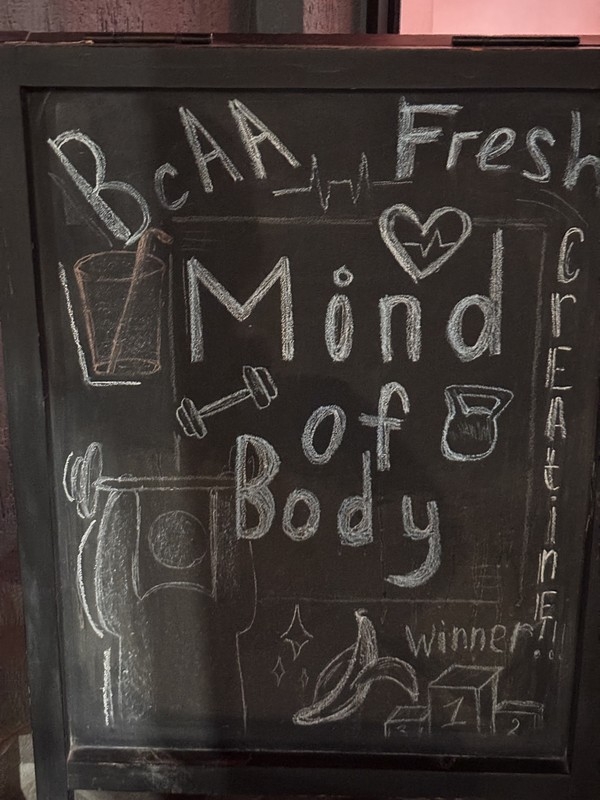 BcAA Fresh
Mind
of
Body
CrEAtinE!!
winner!!
1
2
3